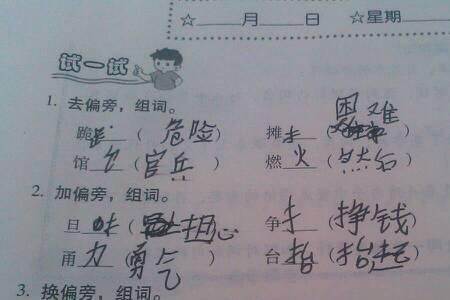 ☆ 月 日 ☆星期
试一试
1. 去偏旁，组词。
跪 （危险） 摊 （困难）
馆 （官兵） 燃 火 （然后）
2. 加偏旁，组词。
旦 （担心） 争 扌 （挣钱）
甬 力 （勇气） 台 抬 （抬起）
3. 换偏旁，组词。